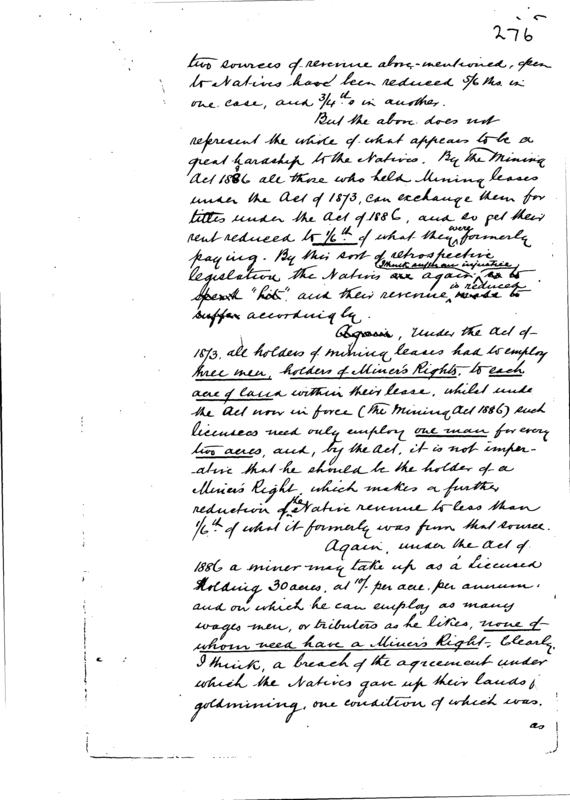 276
two sources of revenue above-mentioned, open
to Natives have been reduced 5/6 ths. in
one case, and 3/4 ths in another.
But the above does not
represent the whole of what appears to be a
great hardship to the Natives. By the Mining
Act 1886 all those who held Mining leases
under the Act of 1873, can exchange them for
titles under the Act of 1886, and so get their
rent reduced to 1/6th of what they were formerly
paying. By this sort of retrospective
legislation the Natives are again, so to
speak "hit" and their revenue is reduced made to
suffer accordingly.
Again, under the Act of
1873, all holders of mining leases had to employ
three men, holders of Miner's Rights, to each
acre of land within their lease, whilst under
the Act now in force (The Mining Act 1886) such
licensees need only employ one man for every
two acres, and, by the Act, it is not imper-
ative that he should be the holder of a
Miner's Right, which makes a further
reduction of the Native revenue to less than
1/6th of what it formerly was from that source.
Again, under the Act of
1886 a miner may take up as a Licensed
Holding 30 acres, at 10/- per acre, per annum.
and on which he can employ as many
wages men, or tributers as he likes, none of
whom need have a Miner's Right. Clearly,
I think, a breach of the agreement under
which the Natives gave up their lands for
goldmining, one condition of which was.
as